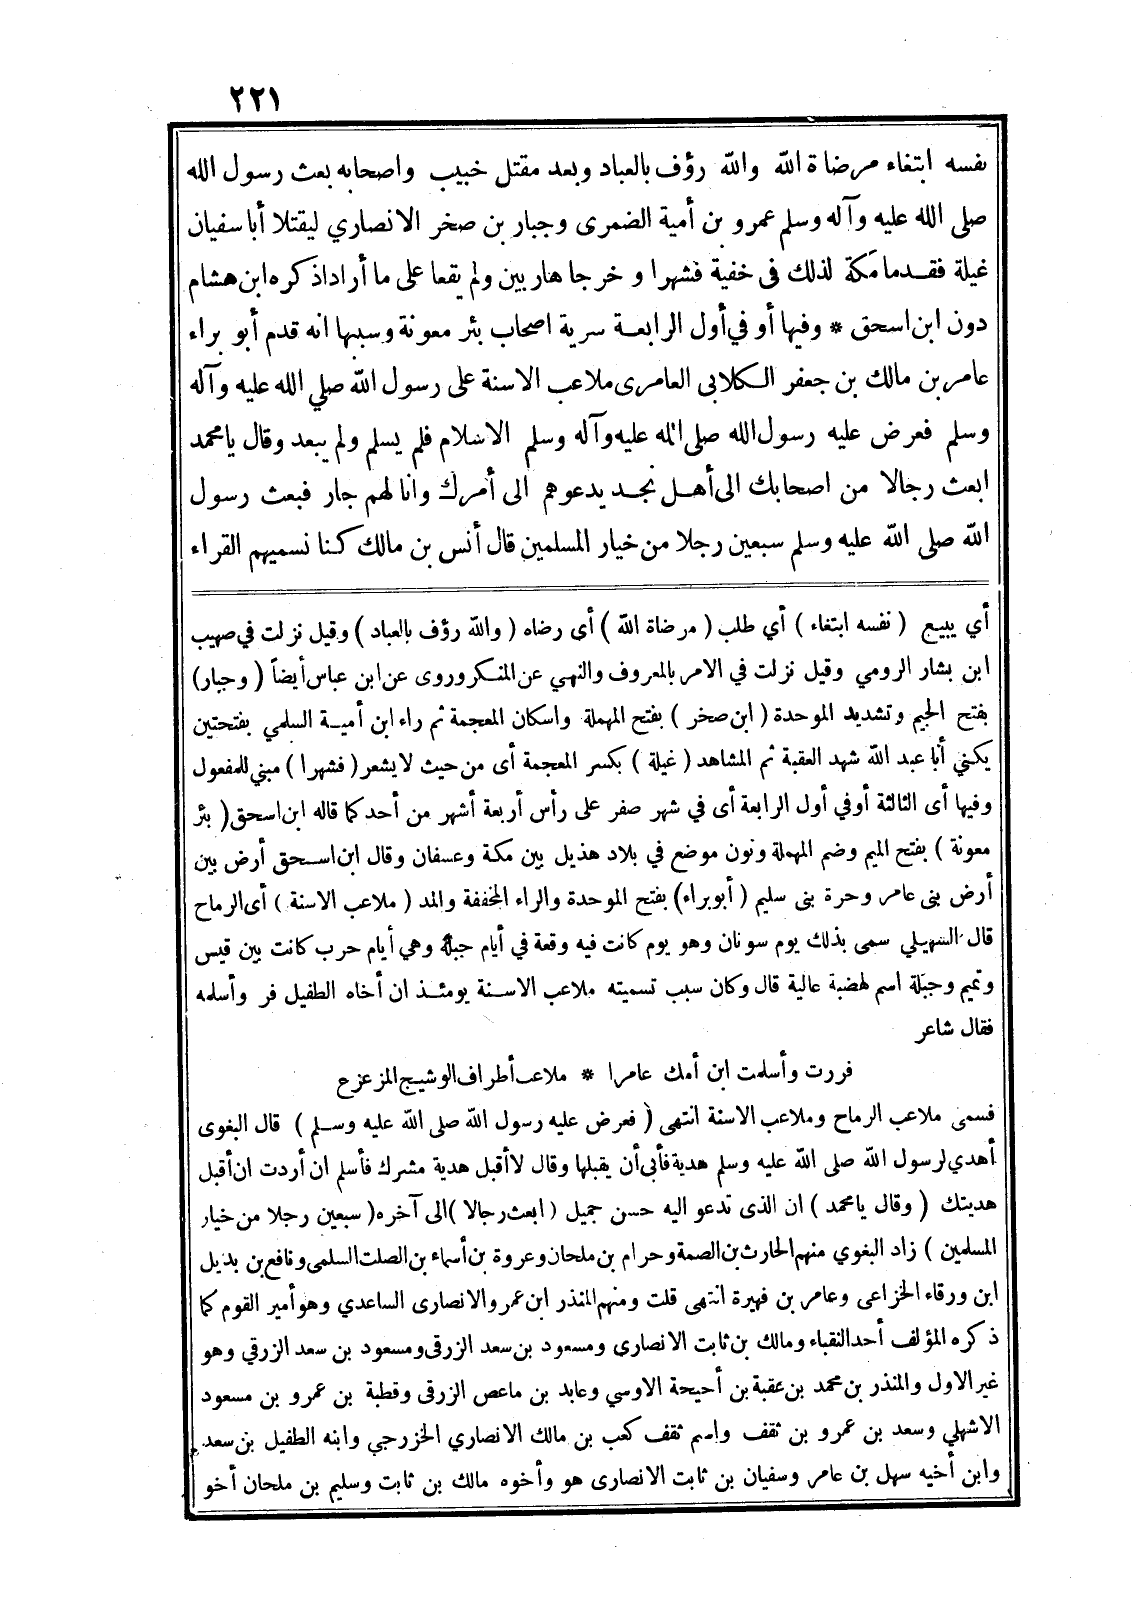 ٢٢١
نفسه ابتغاء مرضاة الله والله رؤف بالعباد وبعد مقتل خبيب واصحابه بعث رسول الله
صلى الله عليه وآله وسلم عمرو بن أمية الضمرى وجبار بن صخر الانصاري ليقتلا أبا سفيان
غيلة فقدما مكة لذلك فى خفية فشهرا و خرجا هاربين ولم يقعا على ما أرادا ذكره ابن هشام
دون ابن اسحق * وفيها أو في أول الرابعة سرية اصحاب بئر معونة وسببها انه قدم أبو براء
عامر بن مالك بن جعفر الكلابى العامرى ملاعب الاسنة على رسول الله صلي الله عليه وآله
وسلم فعرض عليه رسول الله صلى الله عليه وآله وسلم الاسلام فلم يسلم ولم يبعد وقال يامحمد
ابعث رجالا من اصحابك الى أهل نجد يدعوهم الى أمرك وانا لهم جار فبعث رسول
الله صلى الله عليه وسلم سبعين رجلا من خيار المسلمين قال أنس بن مالك كنا نسميهم القراء
أي يبيع ( نفسه ابتغاء ) أي طلب ( مرضاة الله ) أى رضاه ( والله رؤف بالعباد ) وقيل نزلت في صهيب
ابن بشار الرومي وقيل نزلت في الامر بالمعروف والنهي عن المنكر وروى عن ابن عباس أيضاً ( وجبار )
بفتح الجيم وتشديد الموحدة ( ابن صخر ) بفتح المهملة واسكان المعجمة ثم راء ابن أمية السلمي بفتحتين
يكني أبا عبد الله شهد العقبة ثم المشاهد ( غيلة ) بكسر المعجمة أى من حيث لا يشعر ( فشهرا ) مبني للمفعول
وفيها أى الثالثة أو في أول الرابعة أى في شهر صفر على رأس أربعة أشهر من أحد كما قاله ابن اسحق ( بئر
معونة ) بفتح الميم وضم المهملة ونون موضع في بلاد هذيل بين مكة وعسفان وقال ابن اسحق أرض بين
أرض بنى عامر وحرة بنى سليم ( أبوبراء ) بفتح الموحدة والراء المخففة والمد ( ملاعب الاسنة ) أى الرماح
قال السهيلي سمى بذلك يوم سونان وهو يوم كانت فيه وقعة في أيام جبلة وهي أيام حرب كانت بين قيس
وتميم وجبلة اسم لهضبة عالية قال وكان سبب تسميته ملاعب الاسنة يومئذ ان أخاه الطفيل فر وأسلمه
فقال شاعر
فررت وأسلمت ابن أمك عامرا * ملاعب أطراف الوشيج المزعزع
فسمى ملاعب الرماح وملاعب الاسنة انتهى ( فعرض عليه رسول الله صلى الله عليه وسلم ) قال البغوى
أهدي لرسول الله صلى الله عليه وسلم هدية فأبى أن يقبلها وقال لا أقبل هدية مشرك فأسلم ان أردت ان أقبل
هديتك ( وقال يامحمد ) ان الذى تدعو اليه حسن جميل ( ابعث رجالا ) الى آخره ( سبعين رجلا من خيار
المسلمين ) زاد البغوي منهم الحارث بن الصمة وحرام بن ملحان وعروة بن أسماء بن الصلت السلمى ونافع بن بديل
ابن ورقاء الخزاعى وعامر بن فهيرة انتهى قلت ومنهم المنذر ابن عمرو الانصارى الساعدي وهو أمير القوم كما
ذكره المؤلف أحد النقباء ومالك بن ثابت الانصارى ومسعود بن سعد الزرقى ومسعود بن سعد الزرقي وهو
غير الاول والمنذر بن محمد بن عقبة بن أحيحة الاوسي وعابد بن ماعص الزرقى وقطبة بن عمرو بن مسعود
الاشهلي وسعد بن عمرو بن ثقف واسم ثقف كعب بن مالك الانصاري الخزرجي وابنه الطفيل بن سعد
وابن أخيه سهل بن عامر وسفيان بن ثابت الانصارى هو وأخوه مالك بن ثابت وسليم بن ملحان أخو